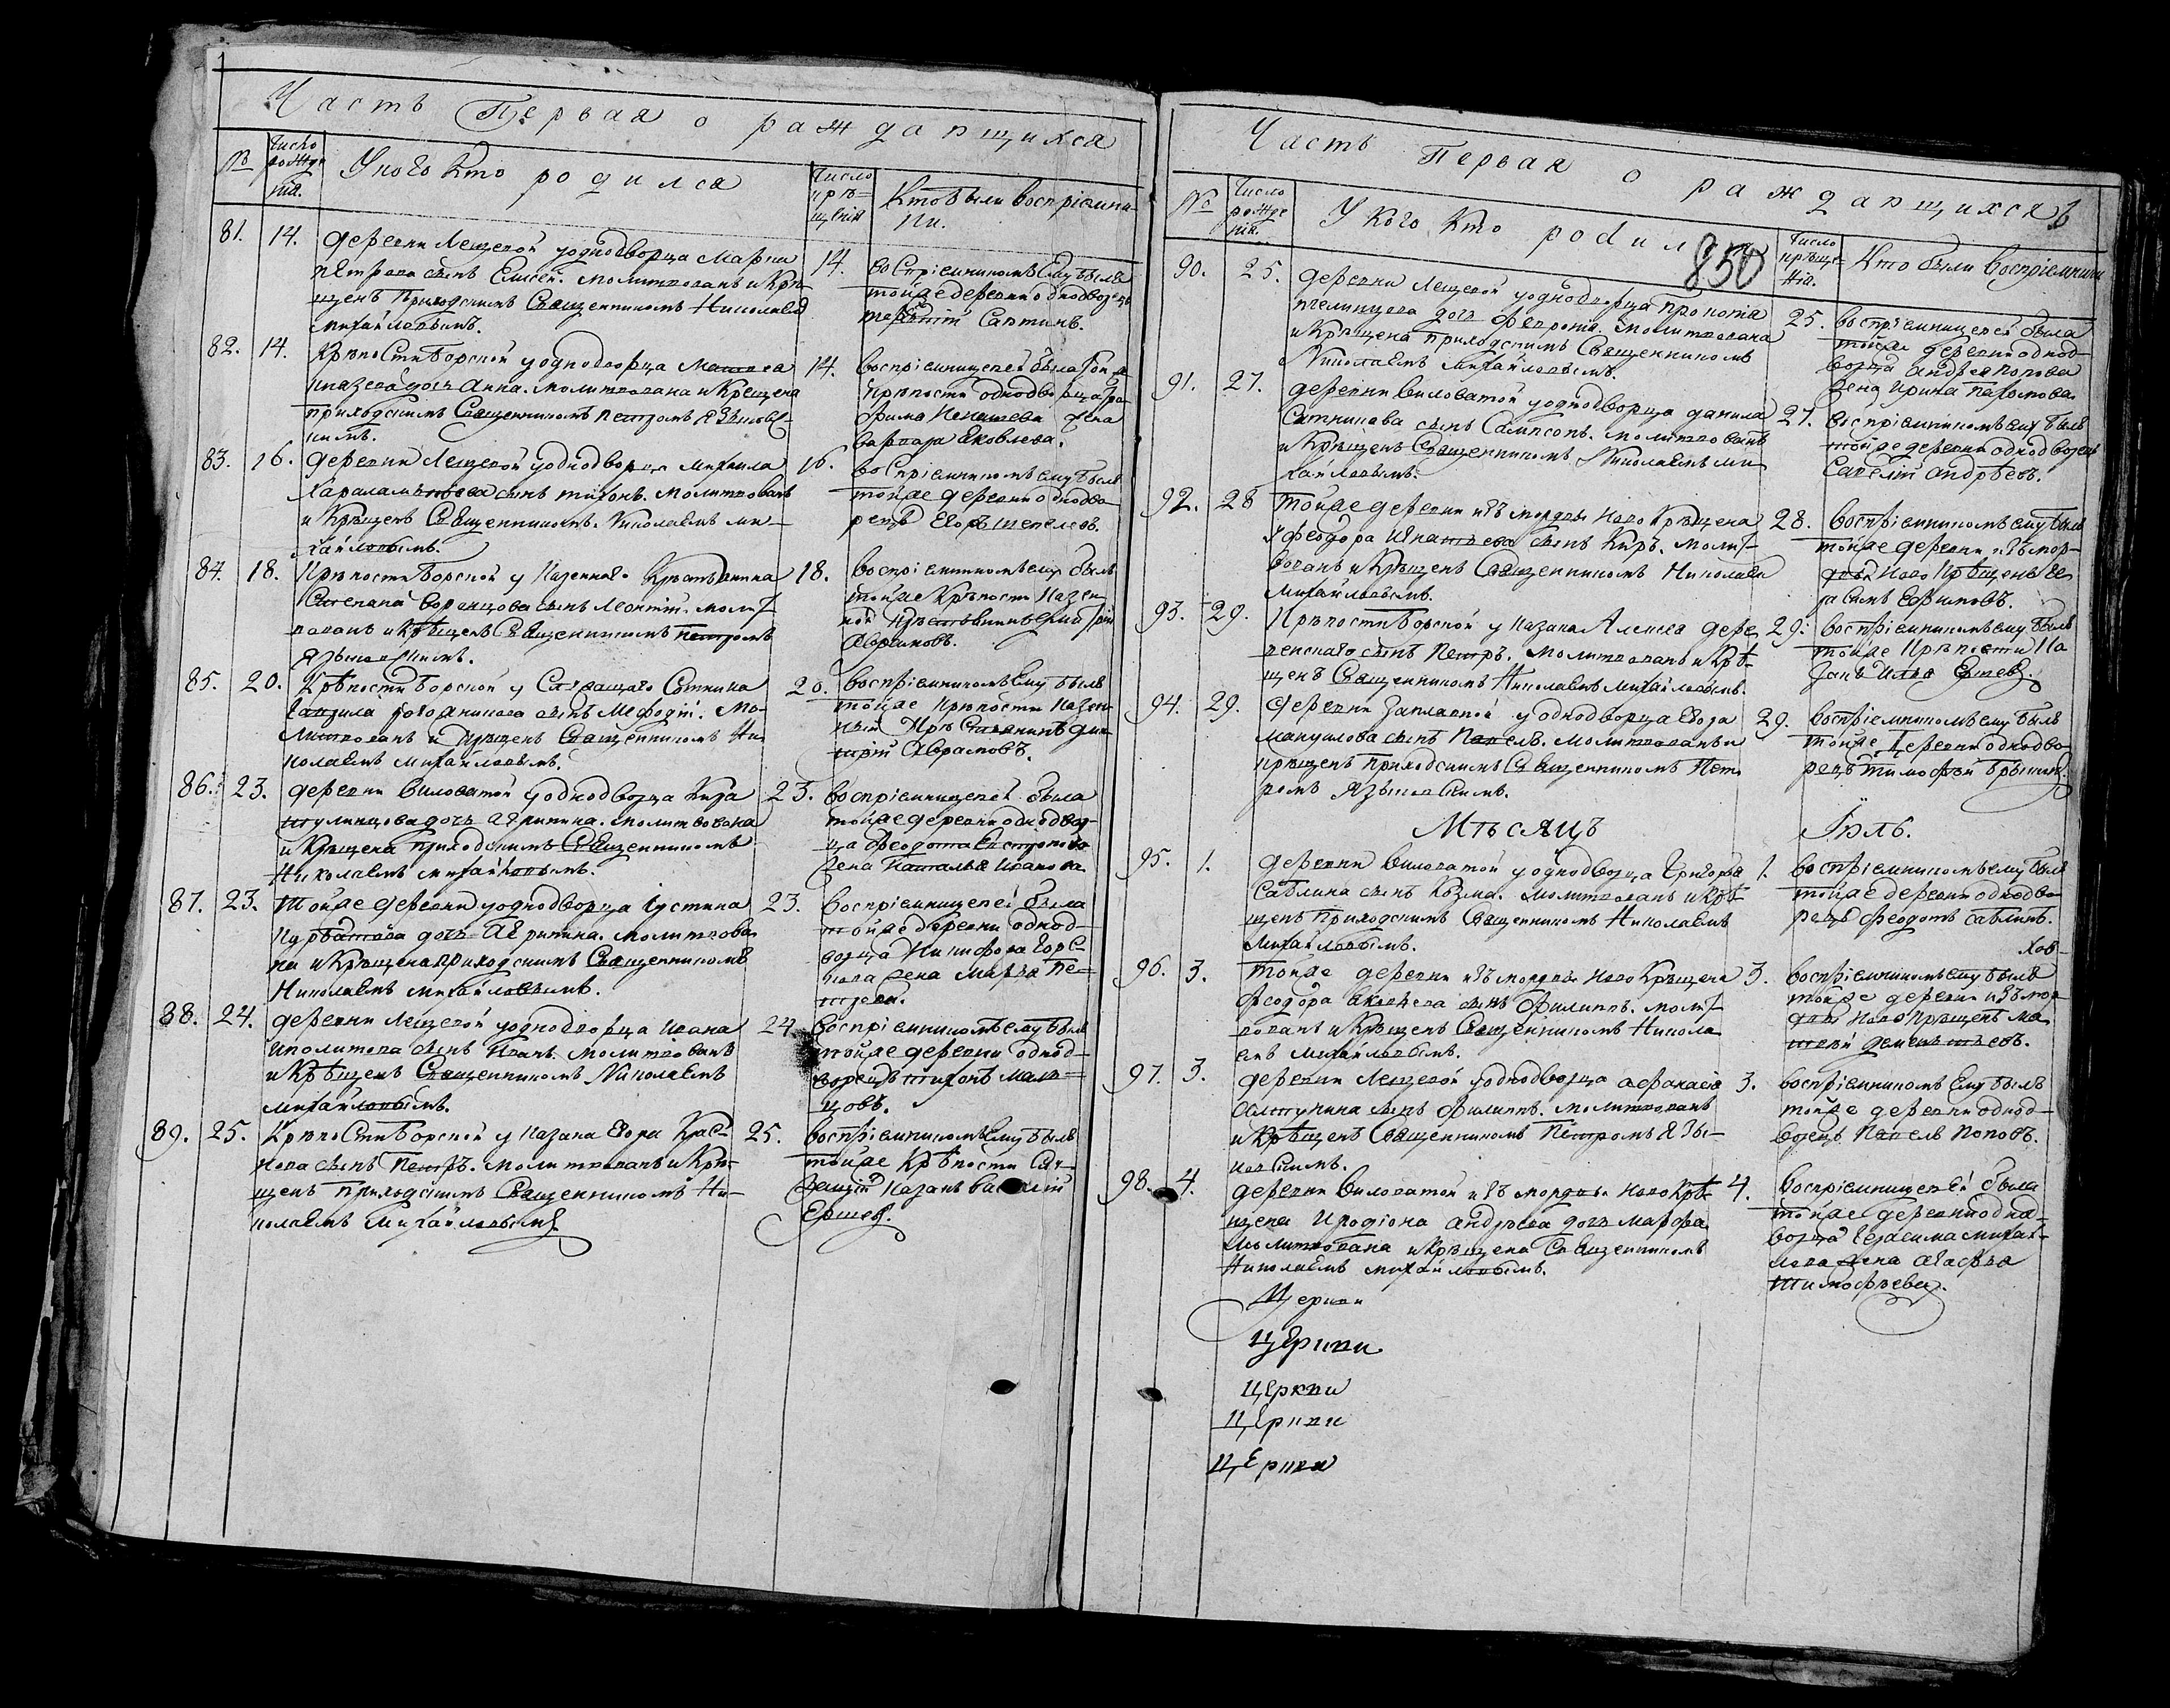 Часть Первая о раждающихся
№
Число
рожде
нiя.
У кого кто родился
Число
крѣ=
щенiя
Кто были воспрiемни-
ки.
81.
14.
деревни Лещевой у однодворца Марки
Петрова сынъ Елисей. молитвованъ и Крѣ-
щенъ Приходскимъ Священникомъ Николаемъ
Михайловымъ.
14.
воспрiемникомъ Ему былъ
тойже деревни однодворецъ
82.
14.
Крѣпости Борской у однодворца
дочь Анна. молитвована и Крещена
приходскимъ Священникомъ Петромъ Языков-
скимъ.
14.
воспрiемницей была той-же
крѣпости однодворца
жена
варвара Яковлева.
83.
16.
деревни Лещевой у однодворца Михаила
Харалампьева сынъ тихонъ. молитвованъ
и Крѣщенъ Священникомъ Николаемъ Ми-
хайловымъ.
16.
воспрiемникомъ ему былъ
тойже деревни однодво-
рецъ Егоръ Шепелевъ.
84.
18.
Крѣпости Борской у Казеннаго Крестьянина
Степана Воронцова сынъ Леонтiй. молит-
вованъ и Крѣщенъ Священникомъ Петромъ
Языковскимъ.
18.
воспрiемникомъ ему былъ
тойже Крѣпости Казен-
ной Крестьянинъ Дмитрiй
Абрамовъ.
85.
20.
Крѣпости Борской у Старшаго Сотника
Гаврила сынъ Мефодiй. Мо-
литвованъ и Крѣщенъ Священникомъ Ни-
колаемъ Михайловымъ.
20.
воспрiемникомъ Ему былъ
тойже Крѣпости Казен-
ный Крестьянинъ Дми-
трiй Абрамовъ.
86.
23.
деревни Виловатой у однодворца Кира
Шулинцова дочь Агрипина. молитвована
и Крѣщена приходскимъ Священникомъ
Николаемъ Михайловымъ.
23.
воспрiемницей была
тойже деревни однодвор-
ца Феодота
жена Наталья Иванова
87.
23.
Тойже деревни у однодворца Густина
Курбатова дочь Агрипина. молитвова-
на и Крѣщена приходскимъ Священникомъ
Николаемъ Михайловымъ.
23.
воспрiемницей была
тойже деревни однод-
ворца Никифора Борс-
кова жена Марья Пе-
трова.
88.
24.
деревни Лещевой у однодворца Ивана
Иполитова сынъ Иванъ. молитвованъ
и Крѣщенъ Священникомъ Николаемъ
Михайловымъ.
24
воспрiемникомъ ему былъ
тойже деревни однод-
ворецъ тихонъ Маль=
цовъ.
89.
25.
Крѣпости Борской у Казака Егора Крас-
нова сынъ Петръ. молитвованъ и Крѣ-
щенъ приходскимъ Священникомъ Ни-
колаемъ Михайловымъ
25.
воспрiемникомъ Ему былъ
тойже Крѣпости Ста-
ршiй Казакъ Василiй
Ершовъ.
Часть Первая о раждающихся
6
850
№
Число
рожде
нiя.
У кого кто родил
Число
крѣще-
нiя.
Кто были воспрiемники
90.
25.
деревни Лещевой у однодворца Прокопiя
Пчелинцова дочь Феврониа. молитвована
и Крѣщена приходскимъ Священникомъ
Николаемъ Михайловымъ.
25.
воспрiемницею была
тойже деревни однод-
ворца Андрея Попова
жена Ирина
91.
27.
деревни Виловатой у однодворца данила
Ситникова сынъ Сампсонъ. молитвованъ
и Крѣщенъ Священникомъ Николаемъ Ми-
хайловымъ.
27.
воспрiемникомъ ему былъ
тойже деревни однодворецъ
Савелiй Андрѣевъ.
92.
28
Тойже деревни изъ мордвы Новокрѣщена
Феодора Игнатьева сынъ Киръ. Молит-
вованъ и Крѣщенъ Священникомъ Николаем
Михайловымъ.
28.
воспрiемникомъ ему былъ
тойже деревни изъ мор-
двы Новокрѣщенъ Ге-
расимъ Ефимовъ.
93.
29.
Крѣпости Борской у Казака Алексея Дере-
венскаго сынъ Петръ. молитвованъ и Крѣ-
щенъ Священникомъ Николаемъ Михайловымъ.
29.
воспрiемникомъ ему былъ
тойже Крѣпости Ка-
закъ Илья Ершовъ.
94.
29.
деревни Заплавной у однодворца Егора
Мануилова сынъ Павелъ. молитвованъ и
крѣщенъ приходскимъ Священникомъ Пет-
ромъ Языковскимъ.
29.
воспрiемникомъ ему былъ
тойже деревни однодво-
рецъ Тимофѣй
Мѣсяцъ
Iюль.
95.
1.
деревни Виловатой у однодворца Григорья
Саблина сынъ Козма. молитвованъ и Крѣ-
щенъ приходскимъ Священникомъ Николаемъ
Михайловымъ.
1.
воспрiемникомъ ему былъ
тойже деревни однодво-
рецъ Феодотъ Саблинъ.
96.
3.
Тойже деревни изъ мордвы Новокрѣщена
Феодора сынъ Филиппъ. молит-
вованъ и Крѣщенъ Священникомъ Никола-
емъ Михайловымъ.
3.
воспрiемникомъ ему былъ
тойже деревни изъ мор-
двы Новокрѣщенъ Ма-
твѣй Дементьевъ.
97.
3.
деревни Лещевой у однодворца Афанасiя
сынъ Филиппъ. молитвованъ
и Крѣщенъ Священникомъ Петромъ Язы-
ковскимъ.
3.
воспрiемникомъ Ему былъ
тойже деревни однод-
ворецъ Павелъ Поповъ.
98.
4.
деревни Виловатой изъ мордвы Новокрѣ-
щена Иродiона Андрѣева дочь Марфа.
Молитвована и Крѣщена Священникомъ
Николаемъ Михайловымъ.
4.
воспрiемницей была
тойже деревни однод-
ворца Герасима Михай-
лова жена Агафья
Тимофѣева.
Церкви
Церкви
Церкви
Церкви
Церкви